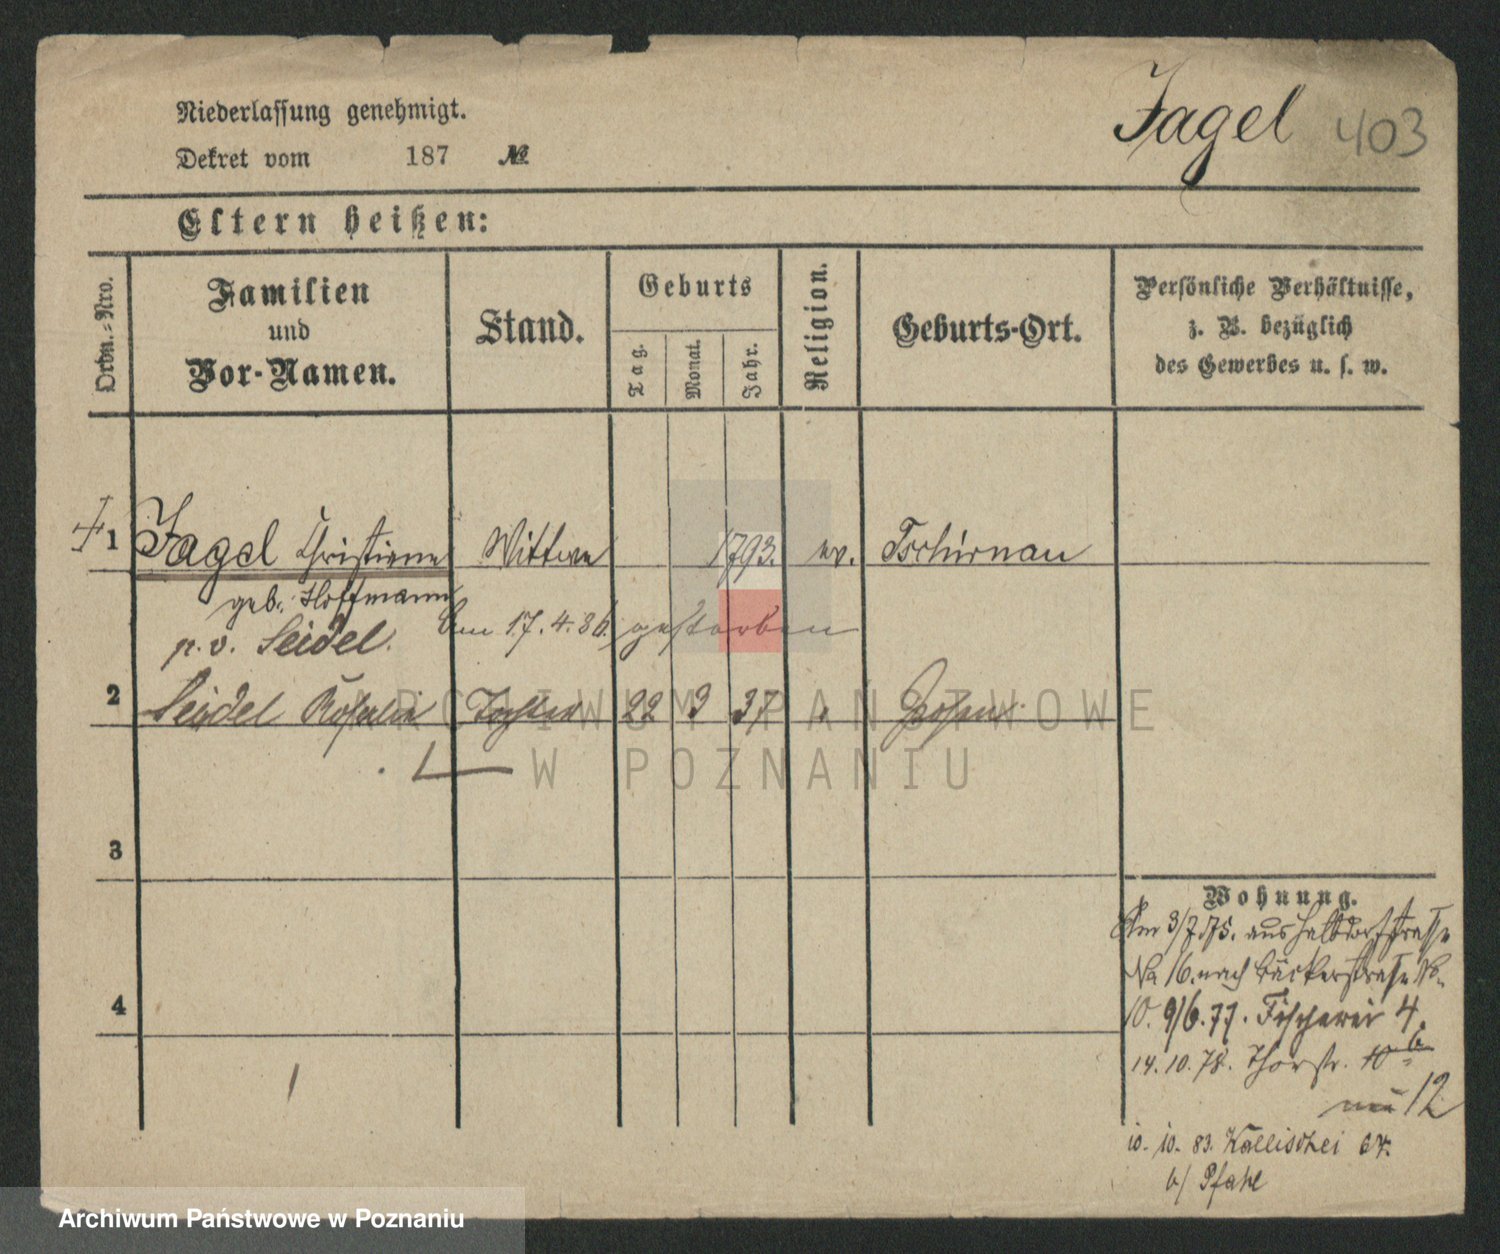 Jagel 403
Niederlassung genehmigt.
Dekret vom 187 №
Eltern heißen:
Ordn.-Nro.
Familien
und
Vor-Namen.
Stand.
Geburts
Tag.
Monat.
Jahr.
Religion.
Geburts-Ort.
Persönliche Verhältnisse,
z. B. bezüglich
des Gewerbes u. s. w.
1 Jagel Christiane Wittwe 1793. ev. Tschirnau
geb. Hoffmann
am 17.4.86 gestorben
p.v. Seidel.
2 Seidel Rosalie Tochter 22 3 37 " Posen
3
4
Wohnung.
Am 3/7.75. aus Halbdorfstrasse
No 16. nach Bäckerstrasse No.
10. 9/6.77. Fischerei 4.
14.10.78. Thorstr. 10b
neu 12
10. 10. 83. Wallischei 67.
b/ Pfahl
ARCHIWUM PAŃSTWOWE
W POZNANIU
Archiwum Państwowe w Poznaniu